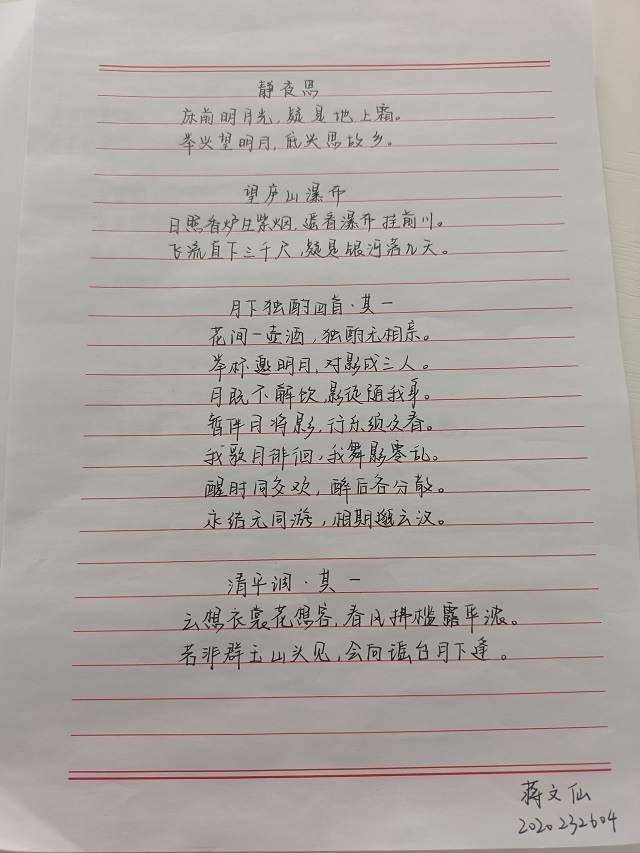 静夜思
床前明月光，疑是地上霜。
举头望明月，低头思故乡。
望庐山瀑布
日照香炉生紫烟，遥看瀑布挂前川。
飞流直下三千尺，疑是银河落九天。
月下独酌四首·其一
花间一壶酒，独酌无相亲。
举杯邀明月，对影成三人。
月既不解饮，影徒随我身。
暂伴月将影，行乐须及春。
我歌月徘徊，我舞影零乱。
醒时同交欢，醉后各分散。
永结无同游，相期邈云汉。
清平调·其一
云想衣裳花想容，春风拂槛露华浓。
若非群玉山头见，会向瑶台月下逢。
蒋文仙
2020232604